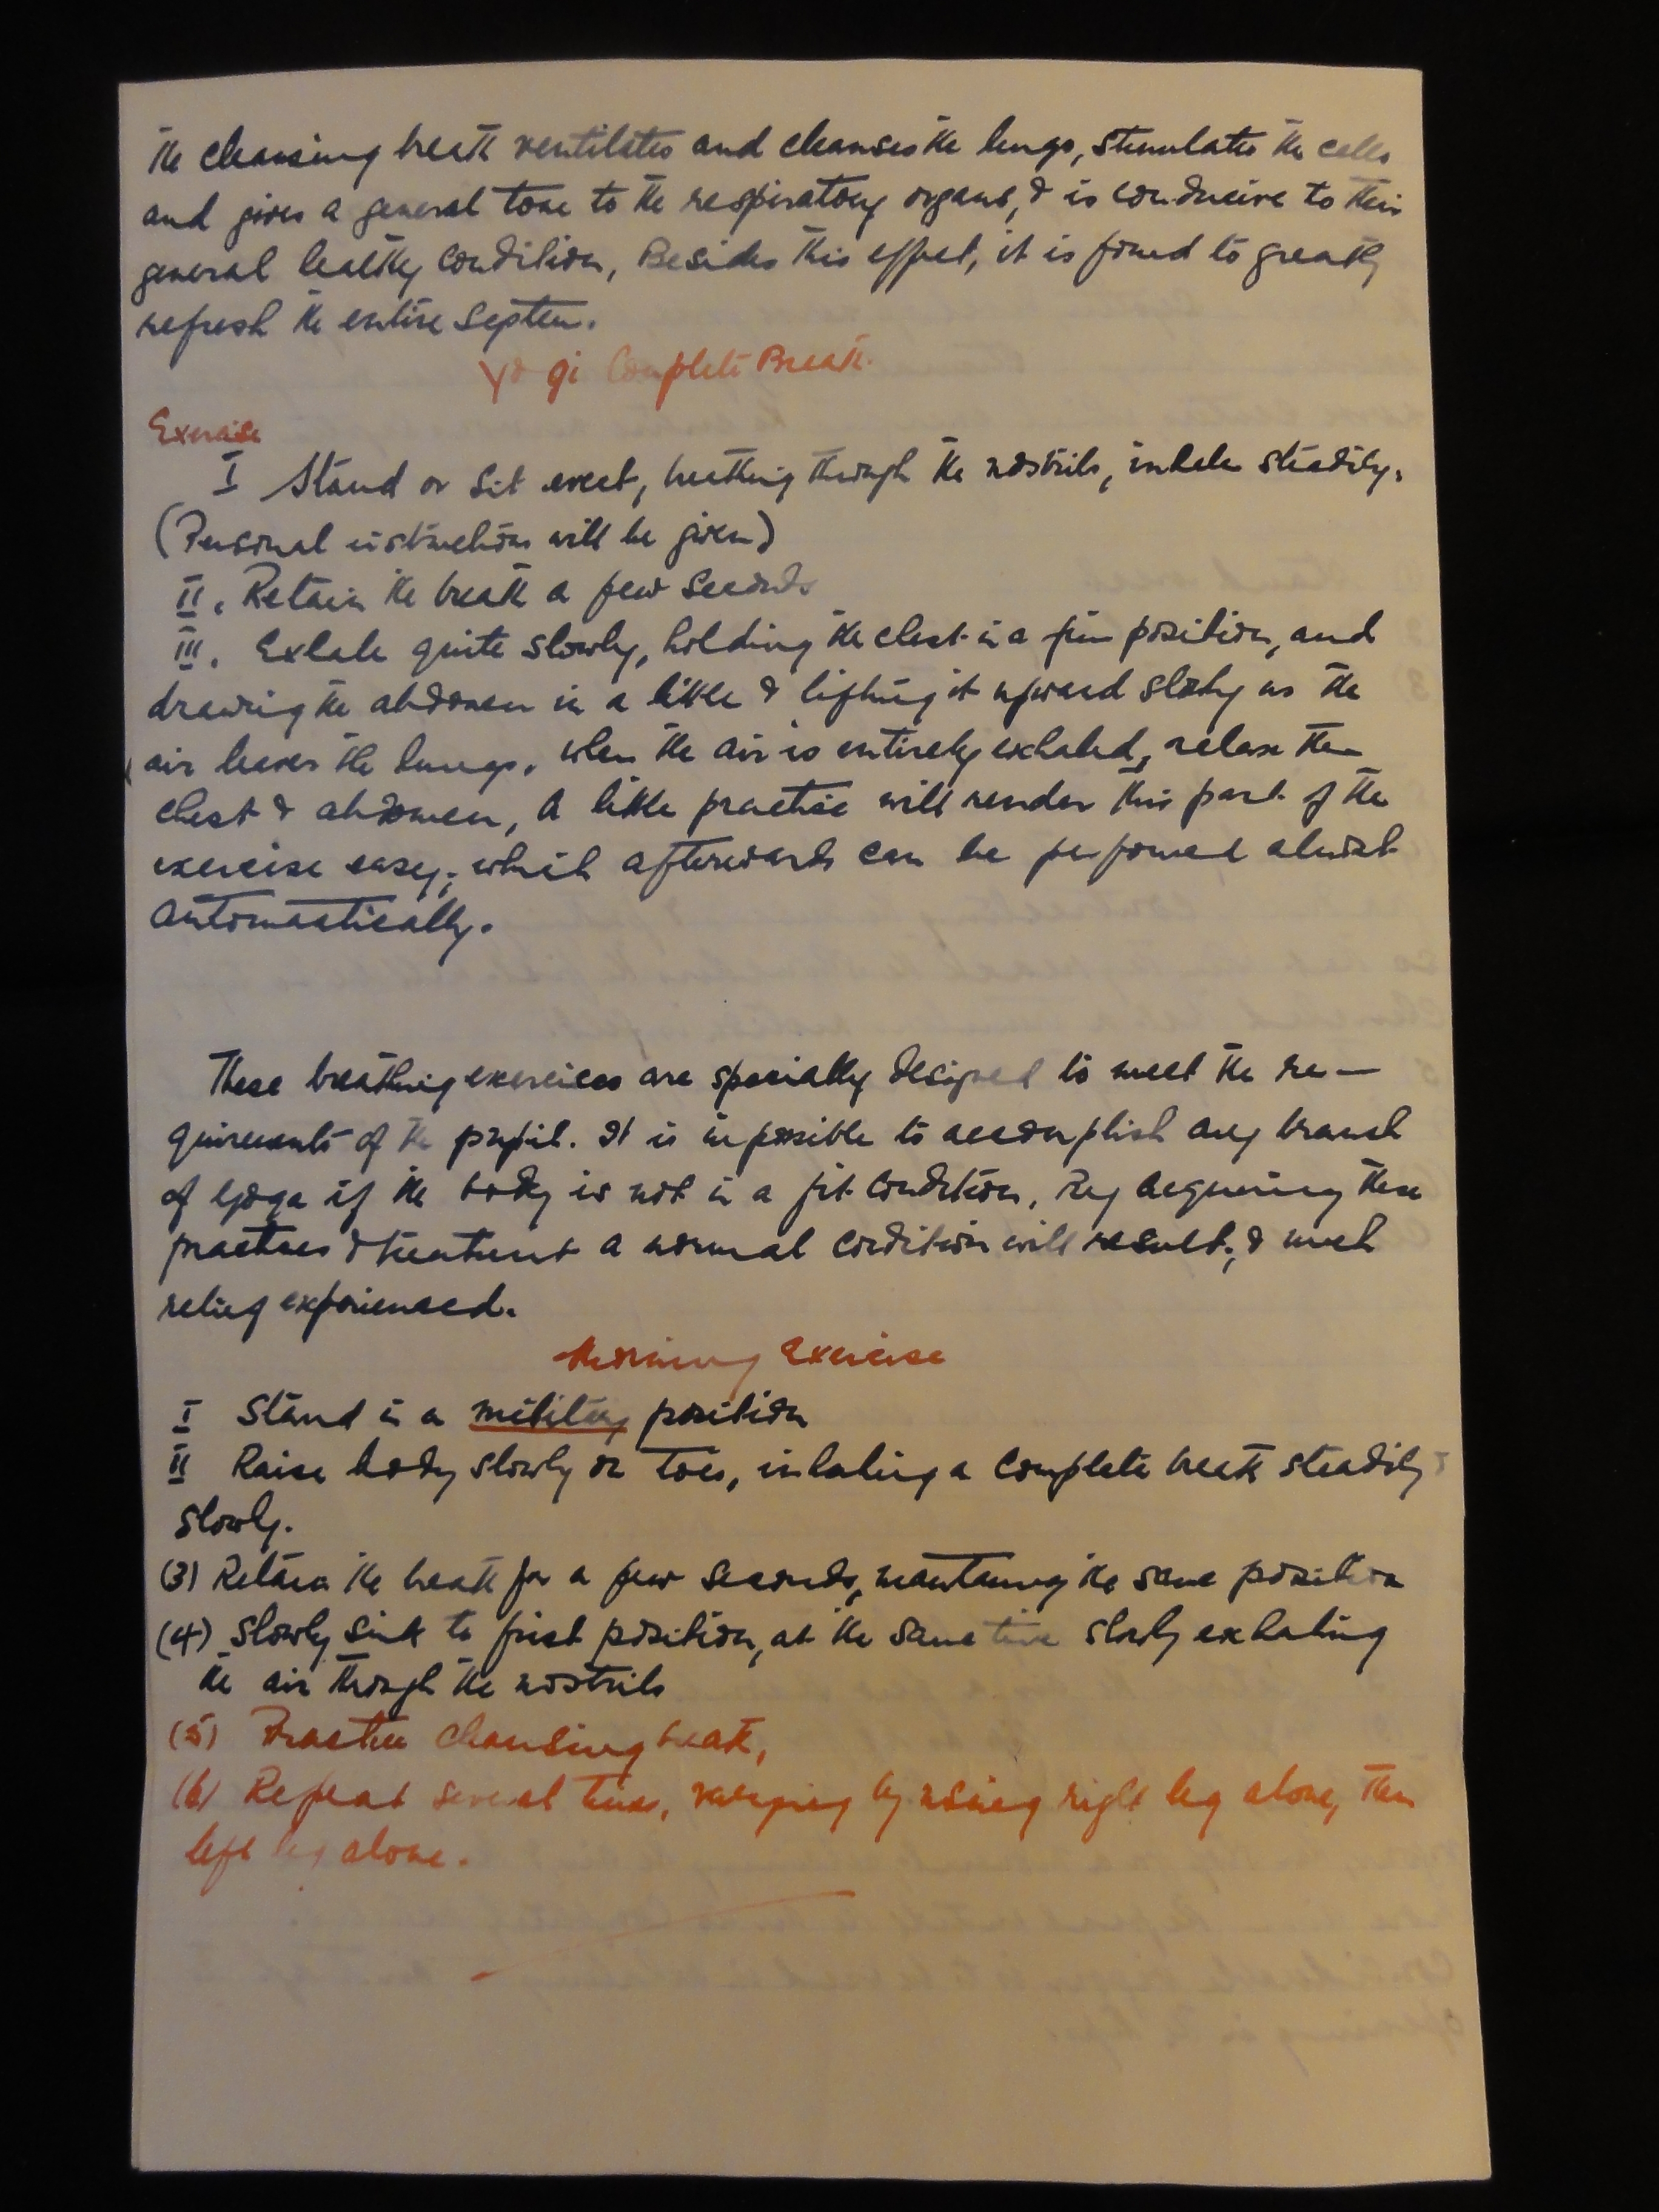 The cleansing breath ventilates and cleanses the lungs, stimulates the cells
and gives a general tone to the respiratory organs, & is conducive to their
general healthy condition, Besides this effect, it is found to greatly
refresh the entire System.
Yogi Complete Breath.
Exercise
I Stand or sit erect, breathing through the nostrils, inhale steadily.
(Personal instructions will be given)
II. Retain the breath a few seconds
III. Exhale quite slowly, holding the chest in a firm position, and
drawing the abdomen in a little & lifting it upward slowly as the
air leaves the lungs. when the air is entirely exhaled, relax the
chest & abdomen, A little practise will render this part of the
exercise easy; which afterwards can be performed almost
automatically.
These breathing exercises are specially designed to meet the re-
quirements of the pupil. It is impossible to accomplish any branch
of yoga if the body is not in a fit condition, By acquiring these
practises & treatment a normal condition will result; & much
relief experienced.
Morning Exercise
I Stand in a military position
II Raise body slowly on toes, inhaling a complete breath steadily &
slowly.
(3) Retain the breath for a few seconds, maintaining the same position
(4) Slowly sink to first position, at the same time slowly exhaling
the air through the nostrils
(5) Practice cleansing breath,
(6) Repeat several times, varying by using right leg alone, then
left leg alone.